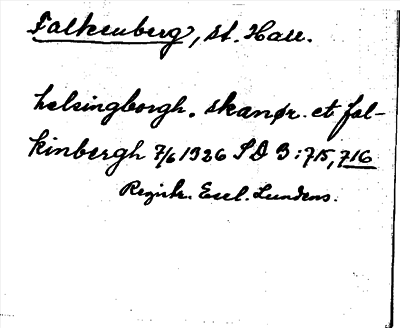 Falkenberg, st. Hall.
helsingborgh. skanør. et fal-
kinbergh 7/6 1326 SD 3:715, 716
Registr. Eccl. Lundens.